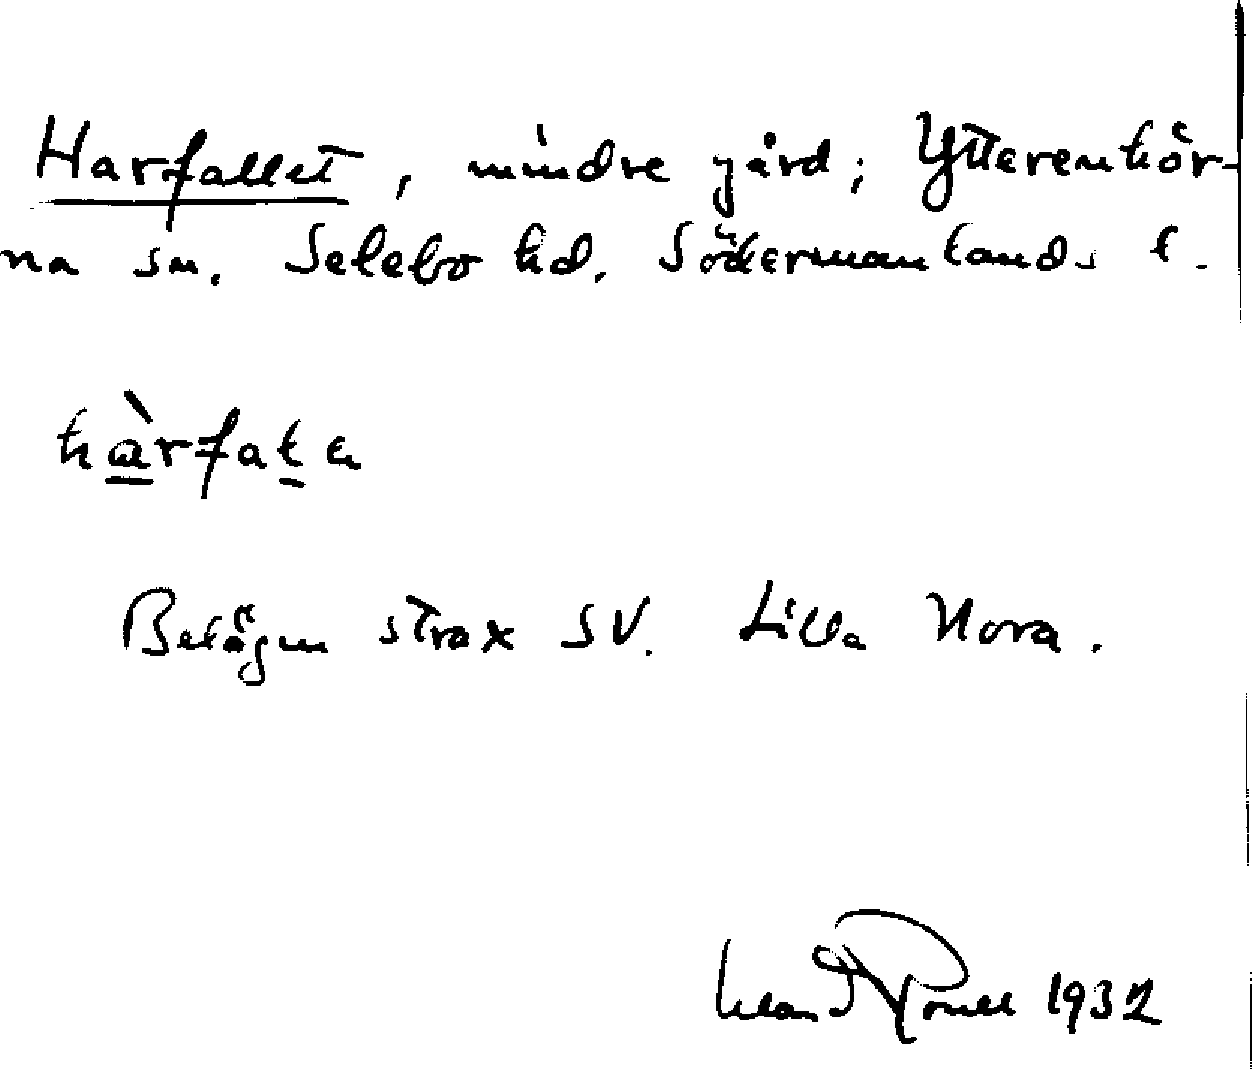 Harfallet, mindre gård; Ytterenhör-
na sn. Selebo hd. Södermanlands l.
hàrfala
Belägen strax SV. Lilla Nora.
1932